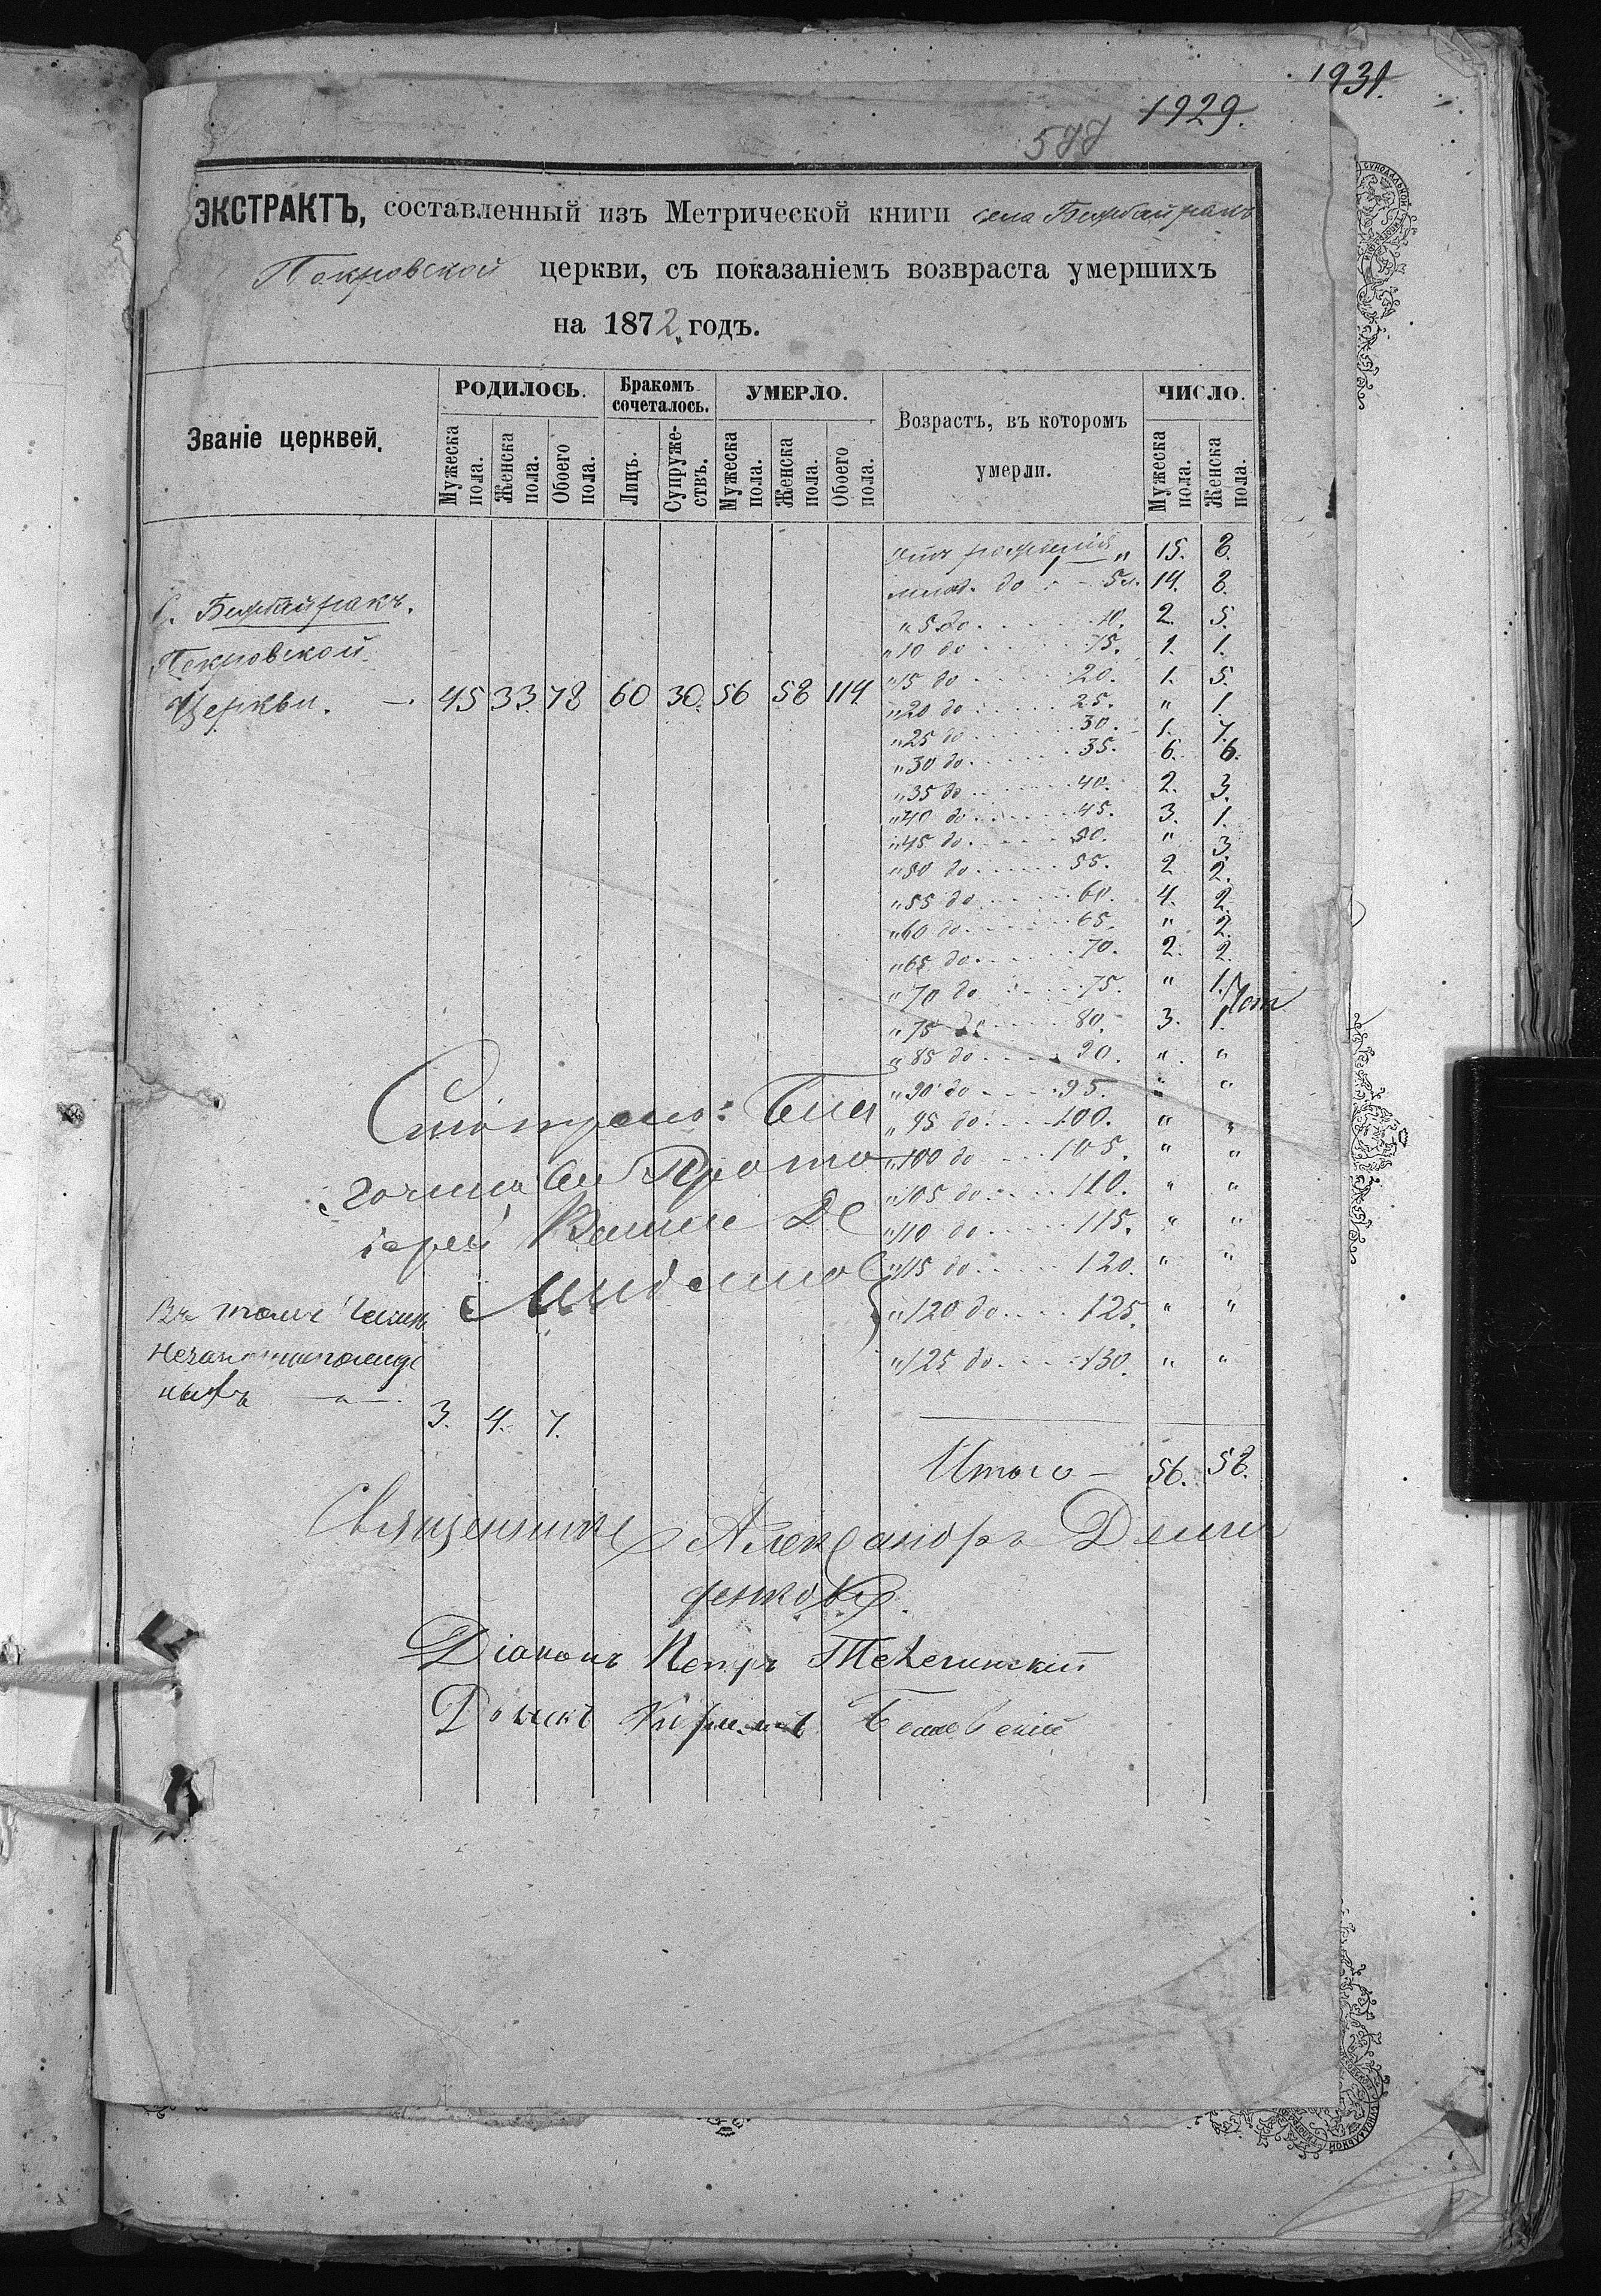 1931.
1929.
577
ЭКСТРАКТЪ, составленный изъ Метрической книги села Бирбайракъ
Покровской церкви, съ показаніемъ возвраста умершихъ
на 1872 годъ.
Званіе церквей.
РОДИЛОСЬ.
Бракомъ сочеталось.
УМЕРЛО.
Возрастъ, въ которомъ умерли.
ЧИСЛО.
Мужеска пола. Женска пола. Обоего пола. Лицъ. Супруже-ствъ. Мужеска пола. Женска пола. Обоего пола. Мужеска пола. Женска пола.
С. Бирбайракъ.
Покровской
Церкви. — 45 33 78 60 30. 56 58 114
отъ рожденія „ 15. 8.
до 5 14. 8.
„ 5 до 10. 2. 5.
„ 10 до 15. 1. 1.
„ 15 до 20. 1. 5.
„ 20 до 25. „ 1.
„ 25 до 30. 1. 7.
„ 30 до 35. 6. 6.
„ 35 до 40. 2. 3.
„ 40 до 45. 3. 1.
„ 45 до 50. „ 3.
„ 50 до 55. 2 2.
„ 55 до 60. 4. 2.
„ 60 до 65. „ 2.
„ 65 до 70. 2. 2.
„ 70 до 75. „ 1.
„ 75 до 80. 3. 1.
„ 85 до 90. „ „
„ 90 до 95. „ „
„ 95 до 100. „ „
„ 100 до 105. „ „
„ 105 до 110. „ „
„ 110 до 115. „ „
„ 115 до 120. „ „
„ 120 до 125. „ „
„ 125 до 130. „ „
Смотрелъ: Бла
гочинный Прото
іерей
Въ томъ числѣ
ныхъ — 3. 4. 7.
Итого — 56. 58.
Священникъ Александръ
Діаконъ Петръ